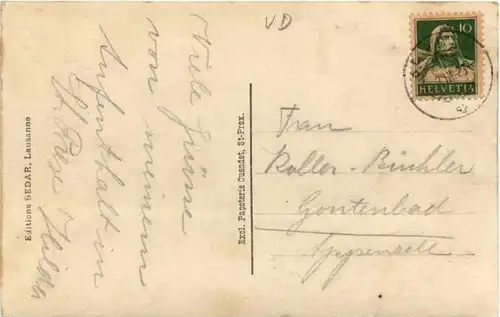 VD
10
HELVETIA
Viele Grüsse
von meinem
Aufenthalt in
St. Prex Hilda
Frau
Koller-Büchler
Gontenbad
Appenzell
Editions SEDAR, Lausanne
Excl. Papeterie Cuendet, St-Prex.